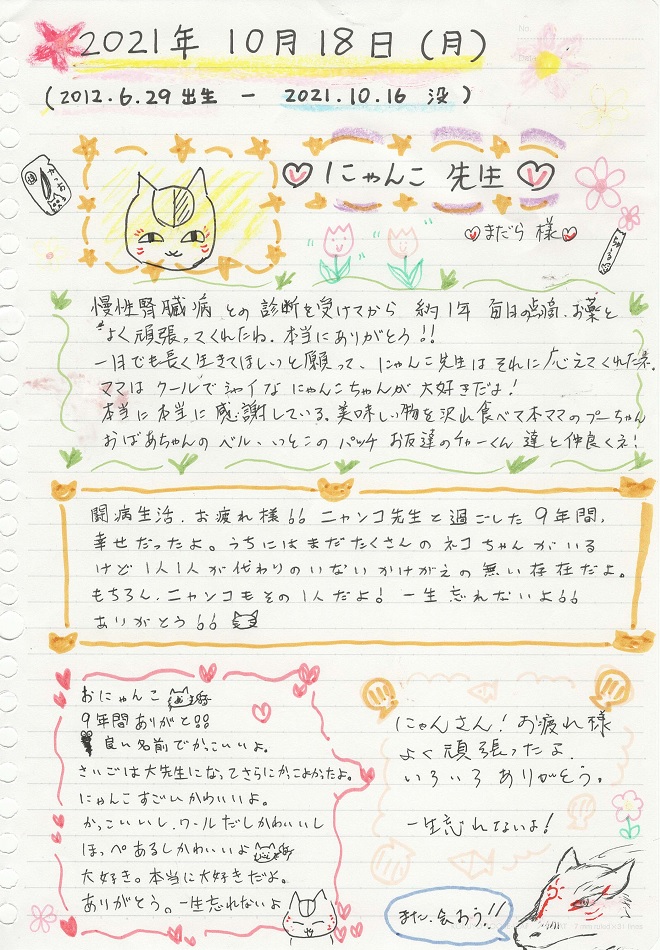 2021年 10月 18日 (月)
(2012.6.29 出生 - 2021.10.16 没)
♡ にゃんこ 先生 ♡
♡まだら 様♡
慢性腎臓病 との 診断を受けてから 約1年 毎日の点滴、お薬と
よく頑張ってくれたね. 本当にありがとう!!
一日でも長く生きてほしいと願って、にゃんこ先生は それに応えてくれたネ.
ママは クールでシャイな にゃんこちゃんが 大好きだよ!
本当に本当に感謝している. 美味しい物を沢山食べて本ママのプーちゃん
おばあちゃんの ベル、いとこの パッチ お友達のチャーくん 達と仲良くネ!
闘病生活、お疲れ様。。ニャンコ先生と過ごした 9年間、
幸せだったよ。うちにはまだたくさんの ネコ ちゃん が いる
けど 1人1人が 代わりのいない かけがえの 無い 存在だよ。
もちろん、ニャンコもその1人だよ! 一生忘れないよ。。
ありがとう。。
おにゃんこ
9年間 ありがと!!
良い名前でかっこいいよ。
さいごは大先生になってさらにかっこよかったよ。
にゃんこすごいかわいいよ。
かっこいいし、クールだしかわいいし
ほっぺあるしかわいいよ
大好き。本当に大好きだよ。
ありがとう。一生忘れないよ
にゃんさん! お疲れ様
よく頑張ったよ.
いろいろ ありがとう。
一生忘れないよ!
また、会おう!!